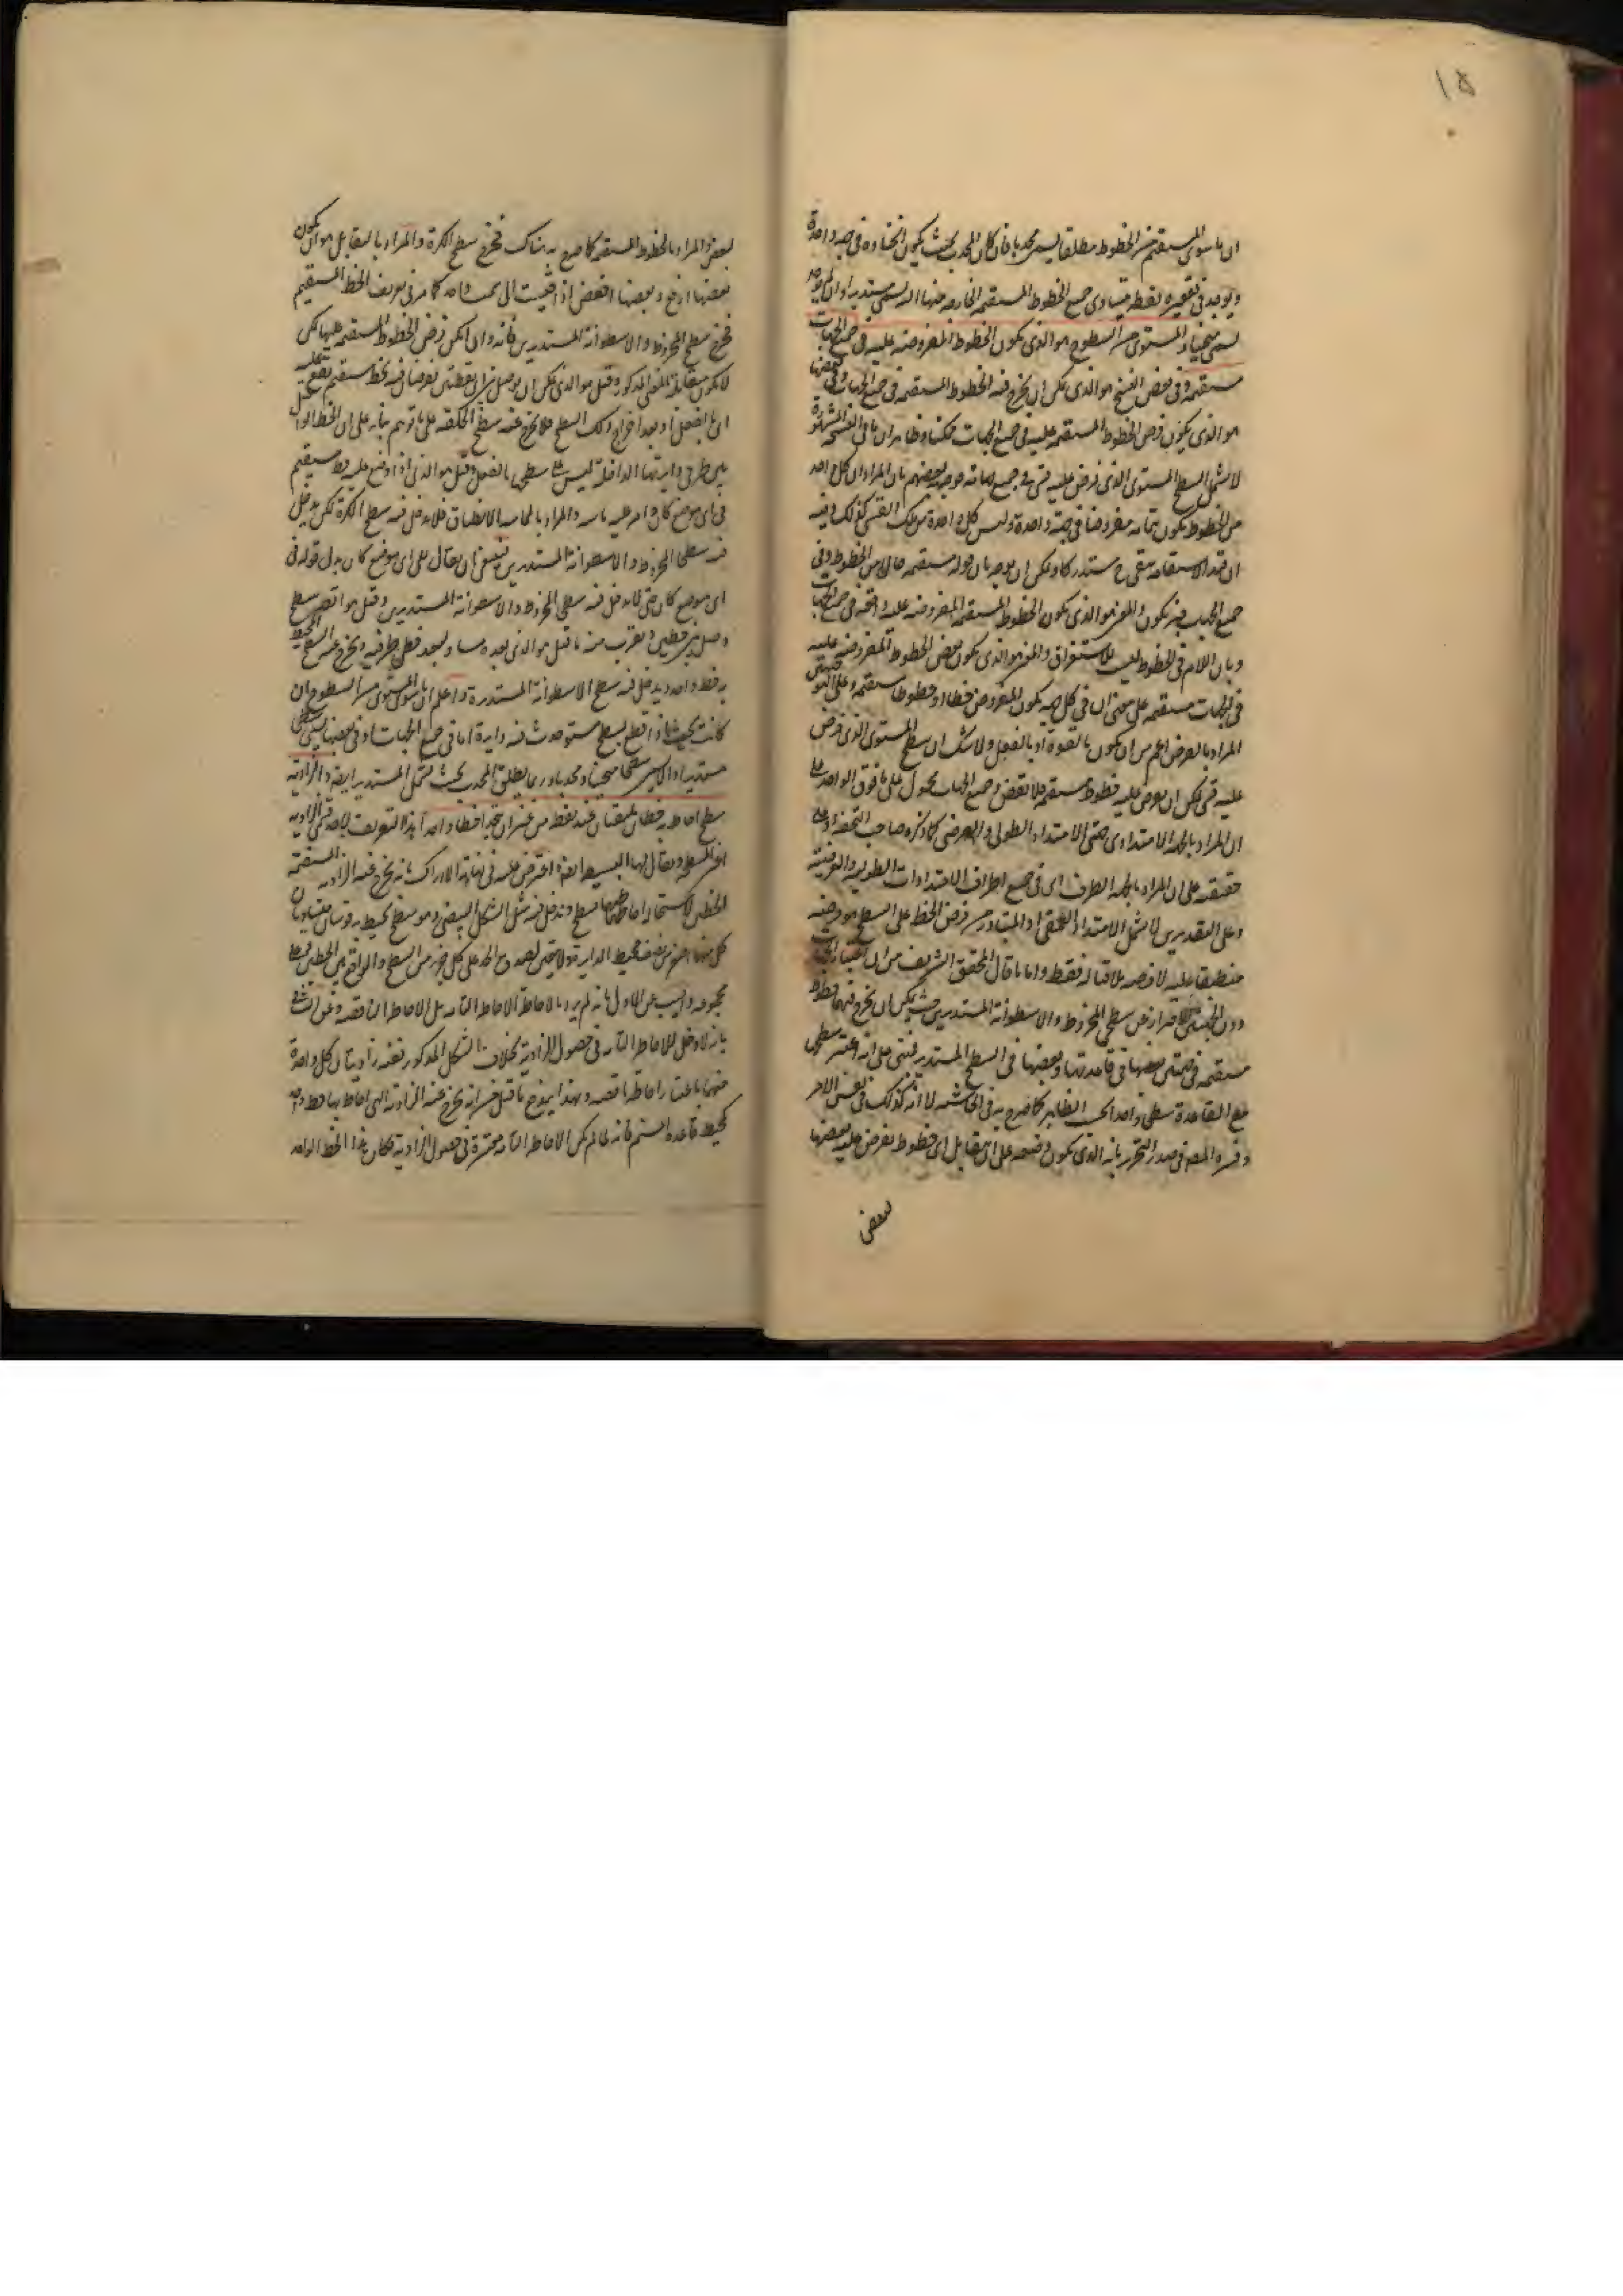 ١٥
ان ما سوى المستقيم من الخطوط مطلقا يسمى محدبا فان كان المحدب بحيث يكون انحناؤه فى جهة واحدة
ويوجد فى تقعيره نقطة يتساوى جميع الخطوط المستقيمة الخارجة منها اليه يسمى مستديرا وان لم يوجد
يسمى منحنيا والمستوى من السطوح هو الذى يكون الخطوط المفروضة عليه فى جميع الجهات
مستقيمة وفى بعض النسخ هو الذى يمكن ان يخرج فيه الخطوط المستقيمة فى جميع الجهات وفى بعضها
هو الذى يكون فرض الخطوط المستقيمة عليه فى جميع الجهات ممكنا وظاهر ان ما فى النسخة المشهورة
لا يشمل السطح المستوى الذى فرض عليه قسى فى جميع جهاته ووجهه بعضهم بان المراد ان كل واحد
من الخطوط يكون بتمامه مفروضا فى جهة واحدة وليس كل واحدة من تلك القسى كذلك وفيه
ان قيد الاستقامة يبقى ح مستدركا ويمكن ان يوجه بان قوله مستقيمة حال من الخطوط وفى
جميع الجهات خبر يكون والمعنى هو الذى يكون الخطوط المستقيمة المفروضة عليه واقعة فى جميع الجهات
وبان اللام فى الخطوط ليست للاستغراق والمعنى هو الذى يكون بعض الخطوط المفروضة عليه
فى الجهات مستقيمة على معنى ان فى كل جهة يكون المفروض خطا او خطوطا مستقيمة وعلى التوجيهين
المراد بالفرض اعم من ان يكون بالقوة او بالفعل ولا شك ان سطح المستوى الذى فرض
عليه قسى يمكن ان يفرض عليه خطوط مستقيمة فلا نقض وجميع الجهات محمول على ما فوق الواحد على
ان المراد بالجهة الامتداد اى جهتى الامتداد الطولى والعرضى كما ذكره صاحب التحفة او على
حقيقته على ان المراد بالجهة الطرف اى فى جميع اطراف الامتدادات الطولية والعرضية
وعلى التقديرين لا يشمل الامتداد العمقى اذ المتبادر من فرض الخط على السطح هو فرضه
منطبقا عليه لا فرضه ملاقيا له فقط واما ما قال المحقق الشريف من ان اعتبار الجهات
دون الجهتين احتراز عن سطحى المخروط والاسطوانة المستديرين حيث يمكن ان يخرج فيهما خطوط
مستقيمة فى جهتين بعضها فى قاعدتها وبعضها فى السطح المستدير فمبنى على انه اعتبر سطحهما
مع القاعدة سطحا واحدا بحسب الظاهر كما صرح به فى الحاشية لا انه كذلك فى نفس الامر
وفسره المصنف فى صدر التحرير بانه الذى يكون وضعه على ان يتقابل اى خطوط تفرض عليه بعضها
لبعض
لبعض والمراد بالخطوط المستقيمة كما صرح به هناك فخرج سطح الكرة والمراد بالتقابل هو ان لا يكون
بعضها ارفع وبعضها اخفض اذا قيست الى سمت واحد كما مر فى تعريف الخط المستقيم
فخرج سطح المخروط والاسطوانة المستديرين فانه وان امكن فرض الخطوط المستقيمة عليهما لكن
لا يكون متقابلة بالمعنى المذكور وقيل هو الذى يمكن ان يوصل بين اى نقطتين تفرضان فيه بخط مستقيم يقع عليه
اى بالفعل او بعد اخراج ذلك السطح فلا يخرج عنه سطح الحلقة على ما توهم بناء على ان الخط الواصل
بين طرفى دايرتها الداخلة ليس على سطحها بالفعل وقيل هو الذى اذا وضع عليه خط مستقيم
فى اى موضع كان وامر عليه ماسه والمراد بالمماسة الانطباق فلا يدخل فيه سطح الكرة لكن يدخل
فيه سطحا المخروط والاسطوانة المستديرين فينبغى ان يقال على اى موضع كان بدل قوله فى
اى موضع كان حتى لا يدخل فيه سطحى المخروط والاسطوانة المستديرين وقيل هو اقصر سطح
وصل بين خطين ويقرب منه ما قيل هو الذى بعده مساو لبعد خطى طرفيه ويخرج عنه السطح المحيط
به خط واحد ويدخل فيه سطح الاسطوانة المستديرة واعلم ان ما سوى المستوى من السطوح ان
كانت بحيث اذا قطع بسطح مستو حدث فيه دايرة اما فى جميع الجهات او فى بعضها يسمى سطحا
مستديرا والا يسمى سطحا منحنيا ومحدبا وربما يطلق المحدب بحيث يشمل المستدير ايضا والزاوية
سطح احاط به خطان يلتقيان عند نقطة من غير ان يتحدا خطا واحدا هذا التعريف لاحد قسمى الزاوية
اعنى المسطحة ويقال لها البسيطة ايضا واعترض عليه فى نهاية الادراك بانه يخرج عنه الزاوية المستقيمة
الخطين لاستحالة احاطتهما بسطح ويدخل فيه مثل الشكل البيضى وهو سطح يحيط به قوسان متساويتان
كل منهما اصغر من نصف محيط الدايرة ولا يحتمل لصدق الحد على كل جزء من السطح والواقع بين الخطين فضلا
مجموعه واجيب عن الاول بانه لم يرد بالاحاطة الاحاطة التامة بل الاحاطة الناقصة وعن الثانى
بانه لا دخل للاحاطة التامة فى حصول الزاوية بخلاف الشكل المذكور نفسه زاويتان كل واحدة
منهما باعتبار احاطة ناقصة وبهذا يندفع ما قيل من انه يخرج عنه الزاوية التى احاط بها خط واحد
كمحيط قاعدة الصنم فانه لما لم يكن الاحاطة التامة معتبرة فى حصول الزاوية فكان هذا الخط الواحد